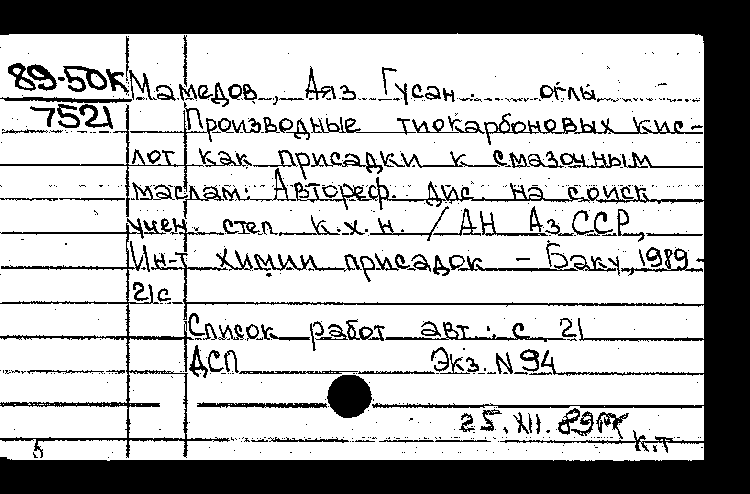 89-50К Мамедов, Аяз Гусан. оглы
7521 Производные тиокарбоновых кис-
лот как присадки к смазочным
маслам: Автореф. дис. на соиск.
учен. степ. к.х.н. / АН АзССР,
Ин-т химии присадок - Баку, 1989-
21с
Список работ авт.: с. 21
ДСП Экз. N 94
25. XII. 89
К.Т